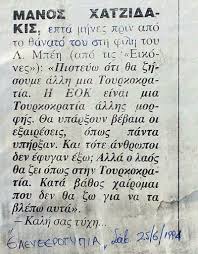 ΜΑΝΟΣ ΧΑΤΖΙΔΑ-
ΚΙΣ, επτα μήνες πριν από
το θάνατό του στη φίλη του
Λ. Μπέη (από τις «Εικό-
νες»): «Πιστεύω ότι θα ζή-
σουμε άλλη μια Τουρκοκρα-
τία. Η ΕΟΚ είναι μια
Τουρκοκρατία άλλης μορ-
φής. Θα υπάρξουν βέβαια οι
εξαιρέσεις, όπως πάντα
υπήρξαν. Και τότε άνθρωποι
δεν έφυγαν έξω; Αλλά ο λαός
θα ζει όπως στην Τουρκοκρα-
τία. Κατά βάθος χαίρομαι
που δεν θα ζω για να τα
βλέπω αυτά».
— Καλή σας τύχη...
ΕΛΕΥΘΕΡΟΤΥΠΙΑ, Σάβ. 25/6/1994